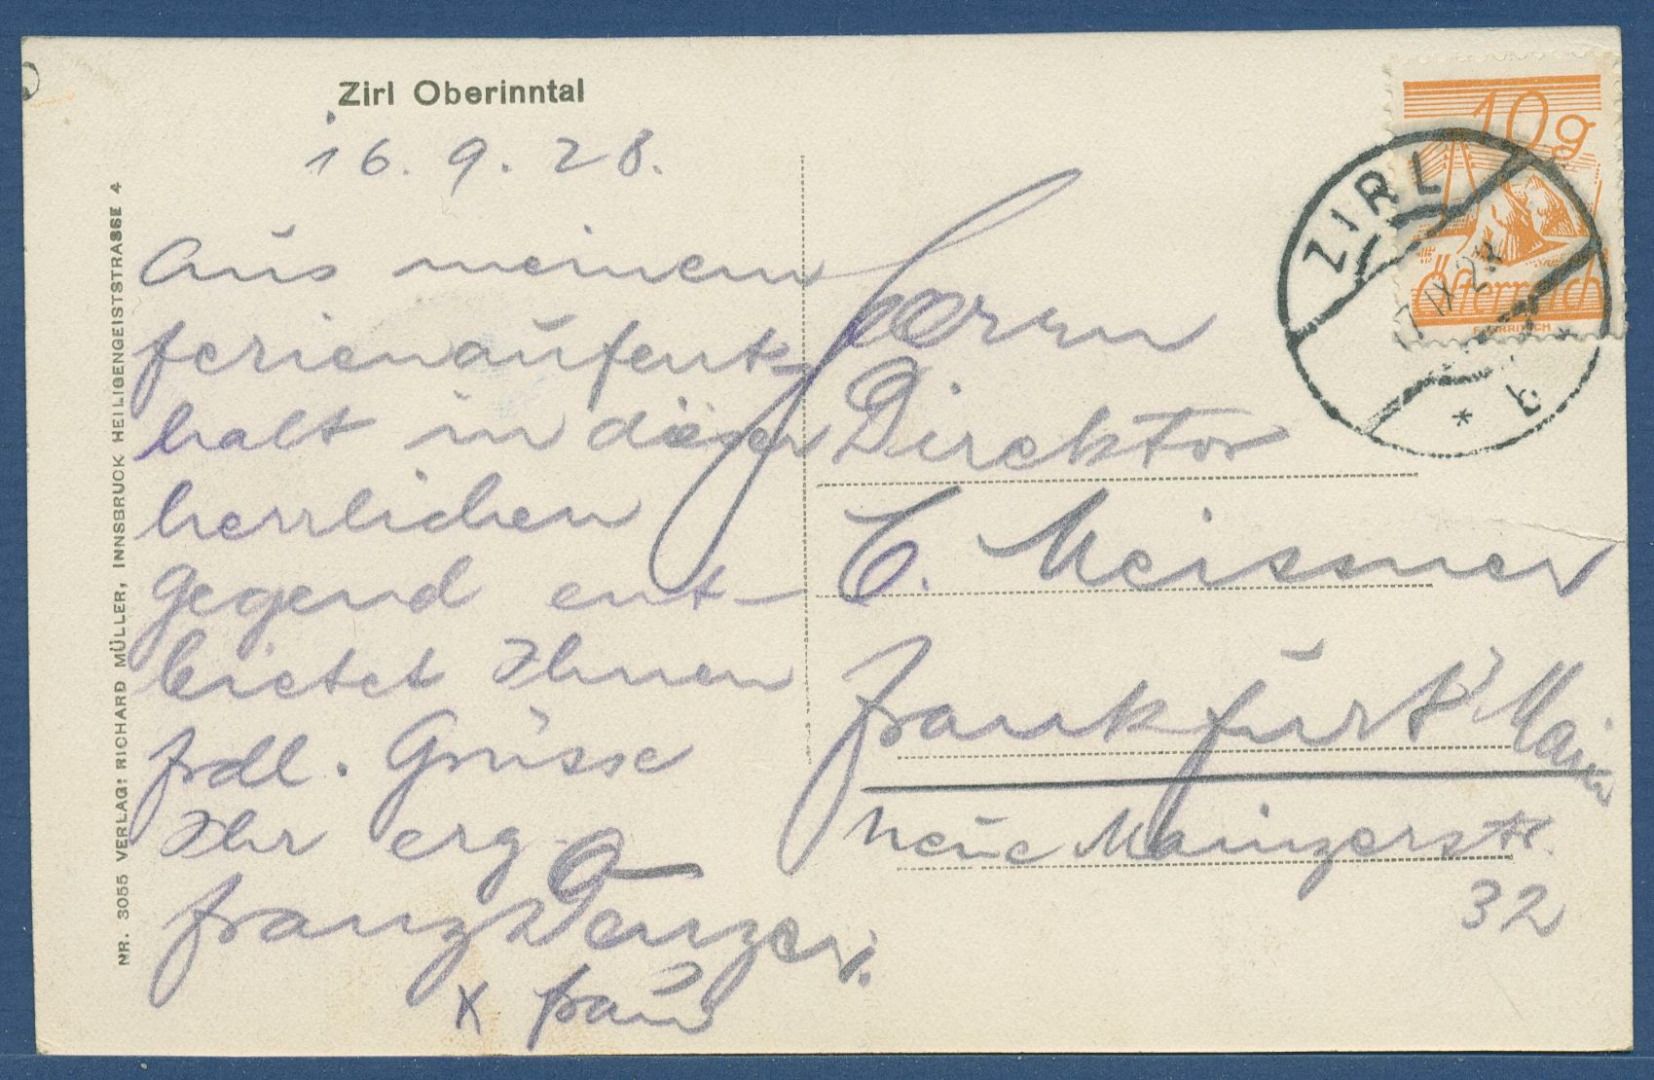 Zirl Oberinntal
16. 9. 28.
Aus meinem
Ferienaufent-
halt in dieser
herrlichen
Gegend ent-
bietet Ihnen
frdl. Grüsse
Ihr erg.
Franz Danzer.
x Frau
Herrn
Direktor
C. Meissner
Frankfurt Main
Neue Mainzerstr.
32
NR. 3055 VERLAG: RICHARD MÜLLER, INNSBRUCK HEILIGENGEISTSTRASSE 4
10g
Österreich
ZIRL
* b *